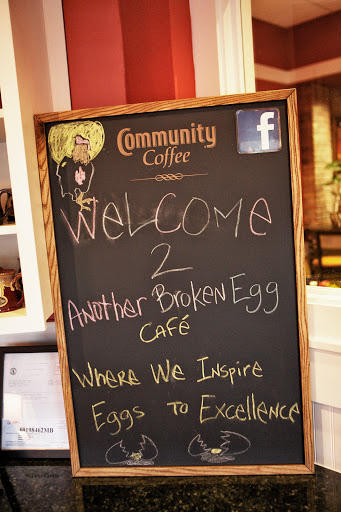 Community
Coffee
f
WELCOME
2
ANOTHER BROKEN EGG
CAFÉ
WHERE WE INSPIRE
EGGS TO EXCELLENCE
60198462MB